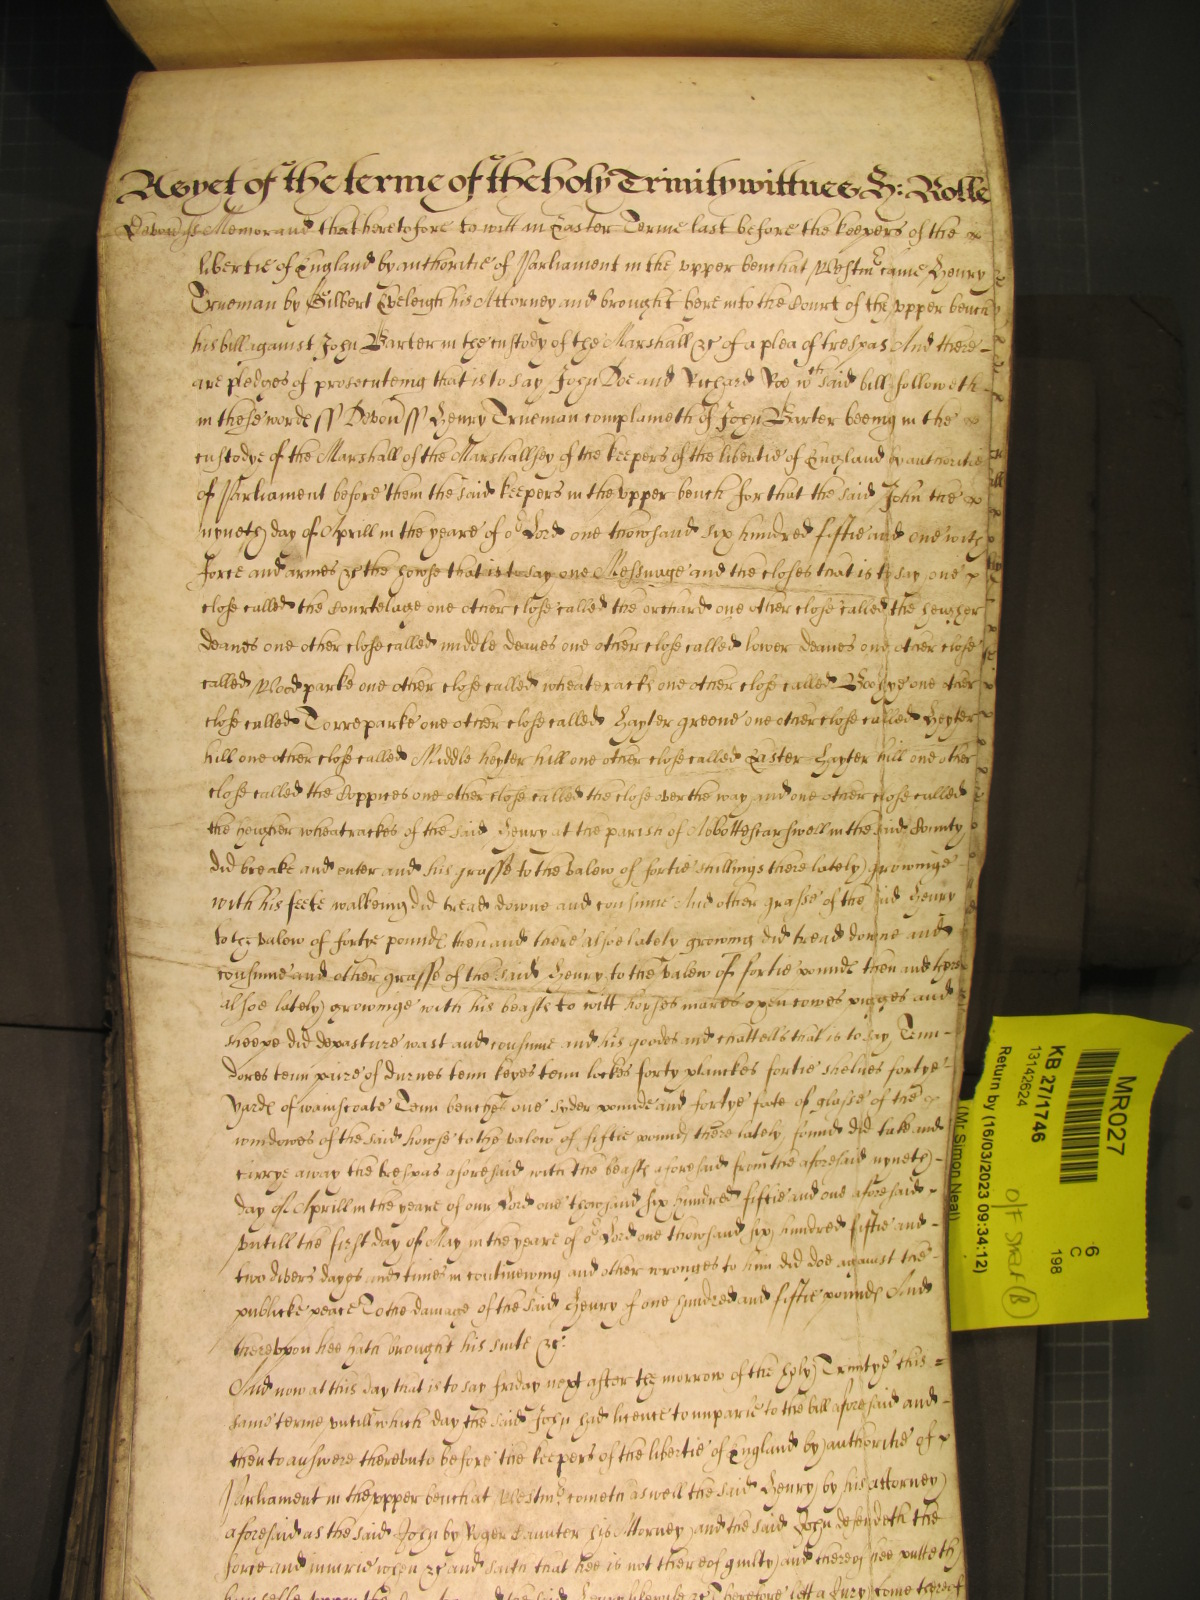 As yet of the terme of the holy Trinity wittnes H: Rolle
Devon ss Memorand that heretofore to witt in Easter Terme last before the keepers of the
libertie of England by authoritie of Parliament in the upper bench at Westmr came Henry
Trueman by Gilbert Eveleigh his Attorney and brought here into the Court of the upper bench
his bill against John Barter in the custody of the Marshall &c of a plea of trespas And there
are pledges of prosecuteing that is to say John Doe and Richard Roe wch said bill followeth
in these words ss Devon ss Henry Trueman complaineth of John Barter beeing in the
custodye of the Marshall of the Marshallsey of the keepers of the libertie of England by authoritie
of Parliament before them the said keepers in the upper bench for that the said John the
nyneth day of Aprill in the yeare of or Lord one thowsand six hundred fiftie and one with
force and armes &c the howse that is to say one Messuage and the closes that is to say one
close called the Courtelage one other close called the orchard one other close called the heigher
deanes one other close called middle deanes one other close called lower deanes one other close
called Wood parke one other close called wheateracks one other close called one other
close called Torreparke one other close called Hayter greene one other close called Heyter
hill one other close called Middle heyter hill one other close called Easter Hayter hill one other
close called the Coppices one other close called the close over the way and one other close called
the heigher wheatrackes of the said Henry at the parish of Abbotteskarswell in the said County
did breake and enter and his grasse to the valew of fortie shillings there lately growinge
with his feete walkeing did tread downe and consume And other grasse of the said Henry
to the valew of fortye pounds then and there alsoe lately growing did tread downe and
consume and other grasse of the said Henry to the valew of fortie pounds then and there
alsoe lately growinge with his beasts to witt horses mares oxen cowes pigges and
sheepe did depasture wast and consume and his goodes and chattells that is to say Tenn
dores tenn paire of durnes tenn keyes tenn lockes forty planckes fortie shelves fortye
yards of wainscoate Tenn benches one syder pounde and fortye foote of glasse of the
windowes of the said howse to the valew of fiftie pounds there lately found did take and
carrye away the trespas aforesaid with the beasts aforesaid from the aforesaid nyneth
day of Aprill in the yeare of our Lord one thowsand six hundred fiftie and one aforesaid
untill the first day of May in the yeare of or Lord one thowsand six hundred fiftie and
two divers dayes and times in continewing and other wronges to him did doe against the
publicke peace To the damage of the said Henry of one hundred and fiftie pounds And
thereupon hee hath brought his suite &c:
And now at this day that is to say friday next after the morrow of the holy Trinitye this
same terme untill which day the said John had licence to imparle to the bill aforesaid and
then to answere thereunto before the keepers of the libertie of England by authoritie of
Parliament in the upper bench at Westmr cometh aswell the said Henry by his attorney
aforesaid as the said John by Roger Caunter his Attorney and the said John defendeth the
force and iniurie when &c and saith that hee is not thereof guilty and thereof hee putteth
himselfe upon the Countrey and the said Henry likewise &c Therefore lett a Jury come thereof
MR027
KB 27/1746
13142624
Return by (16/03/2023 09:34:12)
(Mr Simon Neal)
6
C
198